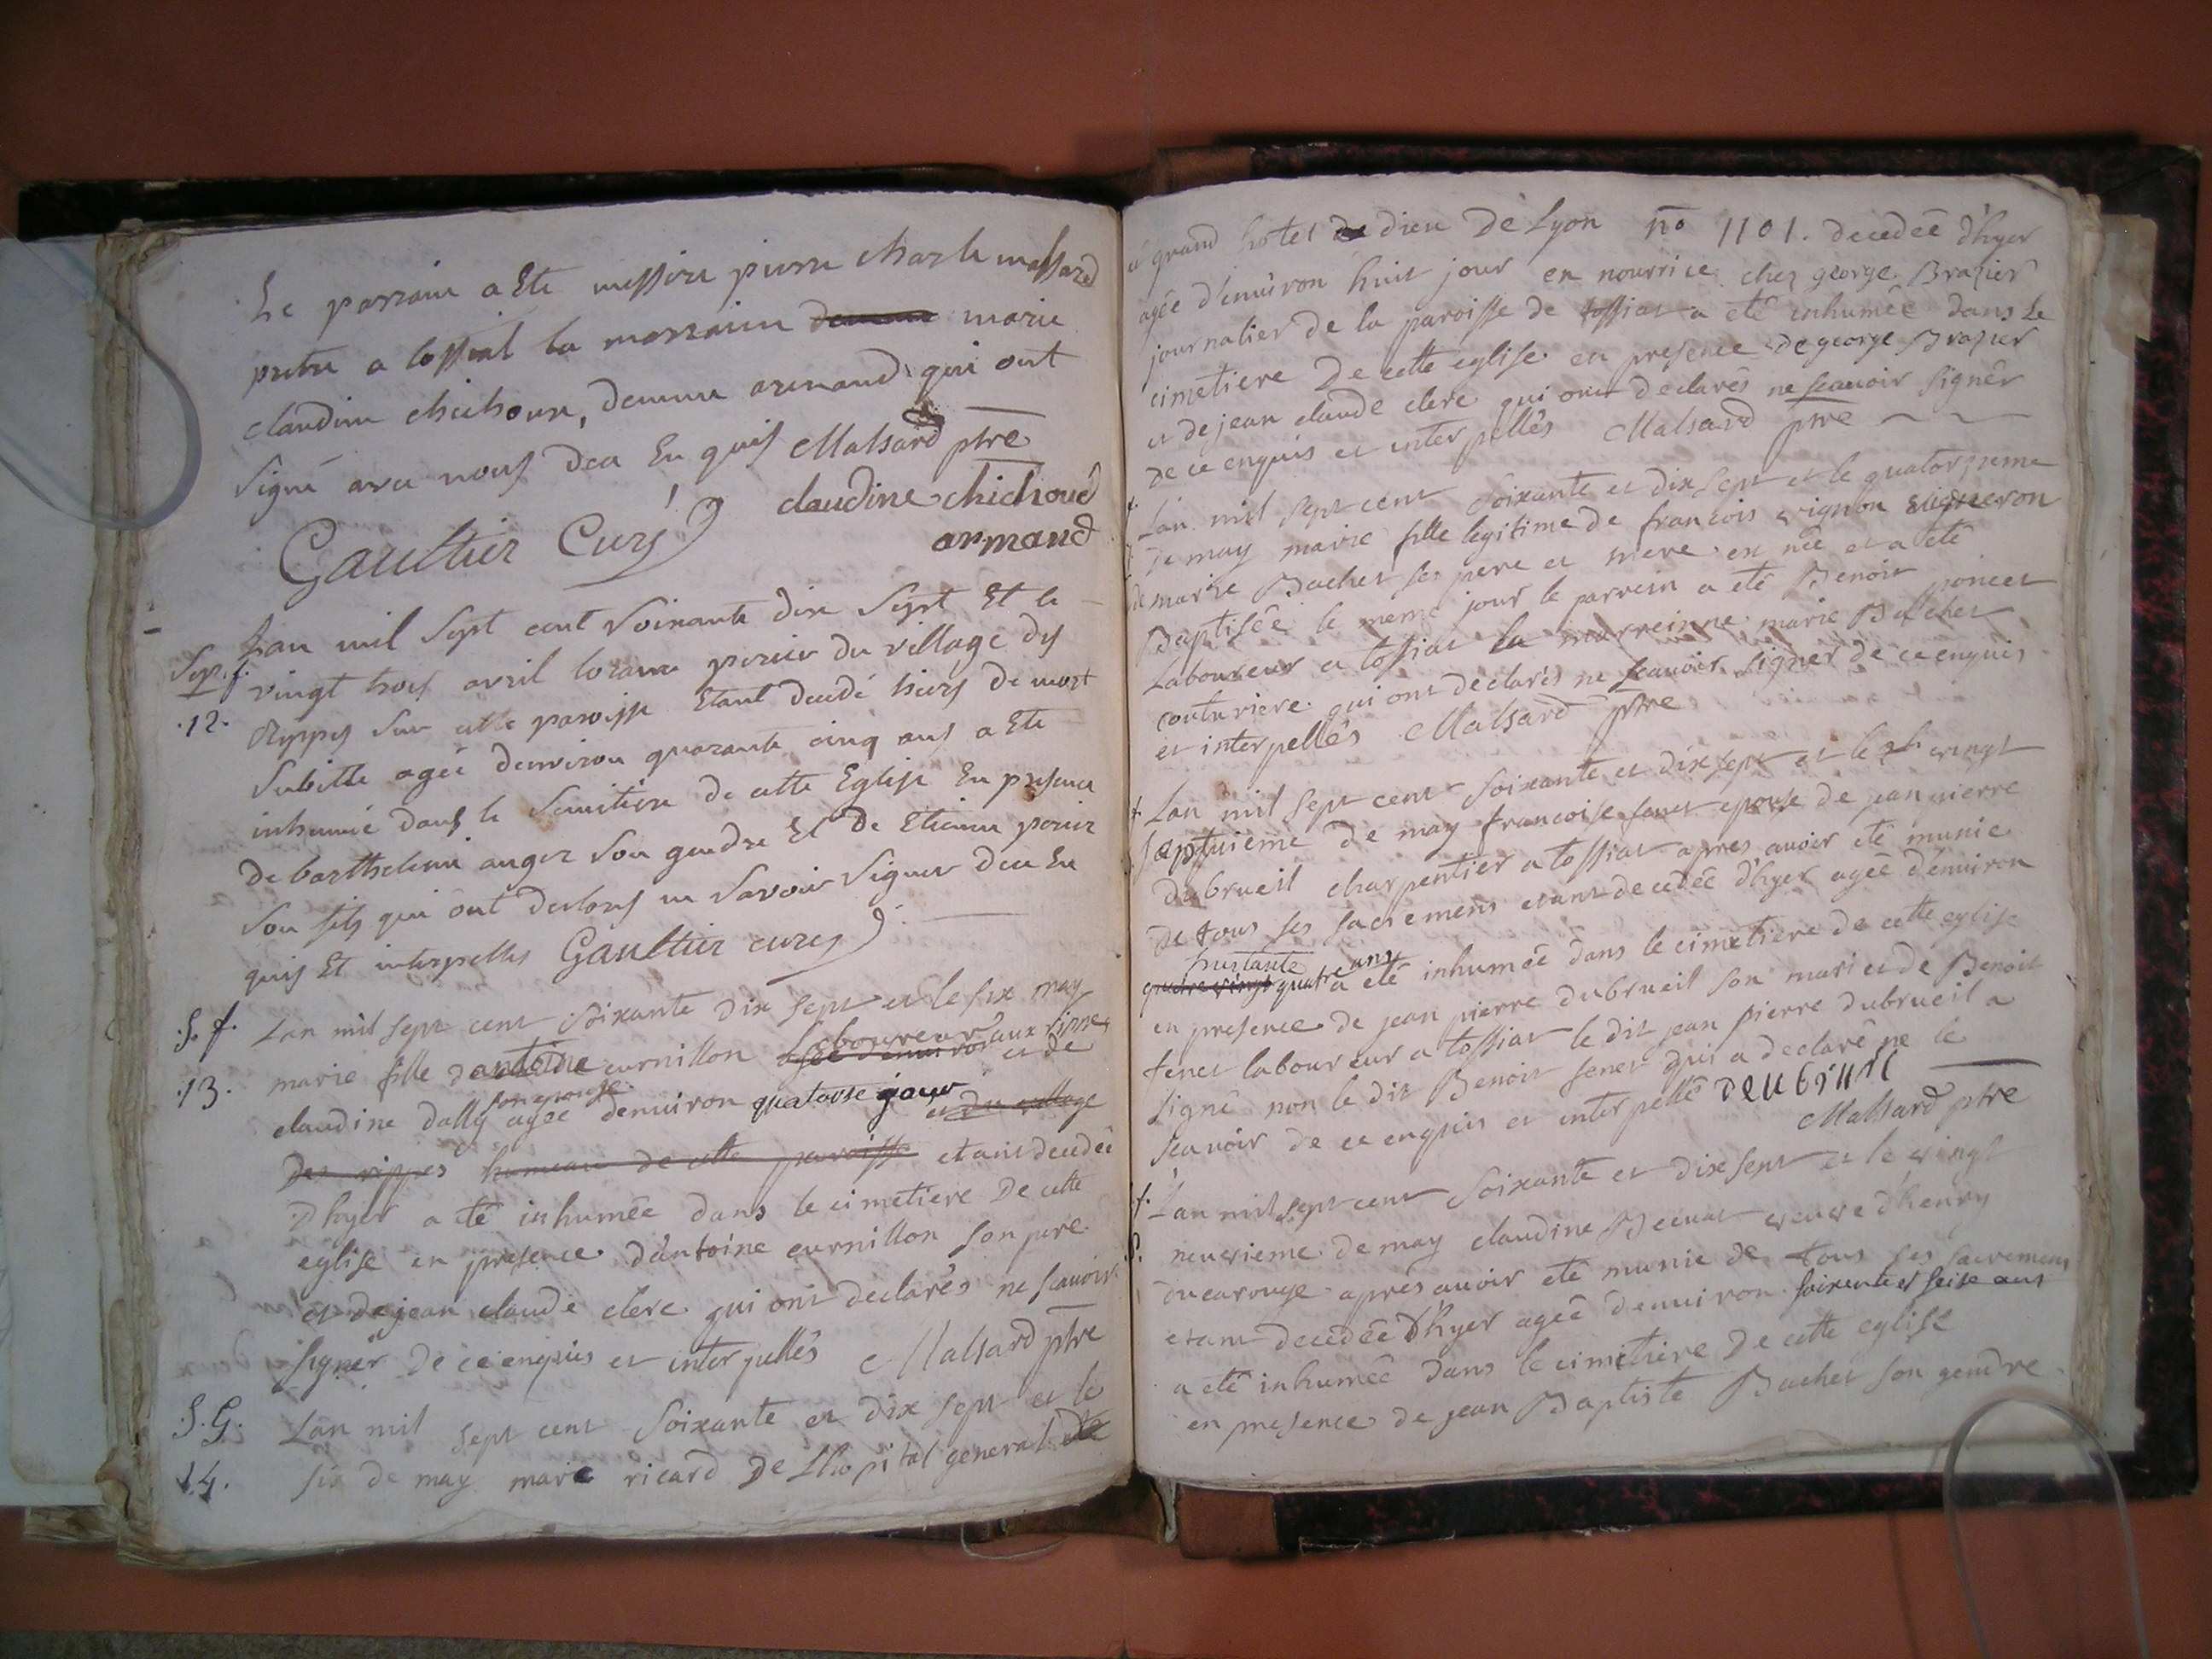 Le parrain a Ete messire pierre charle malsard
pretre a tossiat la marraine marie
claudine chichoux, demme armand qui ont
signé avec nous dea En quis Malsard ptre
claudine chichoud
Gaultier Curé
armand
Lan mil sept cent soixante dix sept Et le
Sep. f. vingt trois avril perier du village des
.12. Rippes sur cette paroisse Etant decedé hiers de mort
subitte agée denviron quarante cinq ans a Ete
inhumé dans le semitiere de cette Eglise En presence
de barthelemi auger son gendre Et de Etienne perier
son fils qui ont declarés ne savoir signer dea En
quis Et interpellés Gaultier curé
.S. f. Lan mil sept cent soixante dix sept et le six may
Laboureur aux rippes
.13. marie fille dantoine curnillon agée denviron et de
son epouse
claudine dally agée denuiron quatorse jour et du village
Des rippes hameau de cette paroisse etant decedeé
Dhyer a eté inhumeé dans le cimetiere De cette
eglise en presence d'antoine curnillon son pere
et de jean claude clerc qui ont declarés ne scauoir
signer De ce enquis et interpellés Malsard ptre
.S. G. Lan mil sept cent soixante et dix sept et le
14. six de may marie ricard De Lhopital general de
grand hotel de dieu De Lyon no 1101. decedeé d'hyer
agée d'enuiron huit jour en nourrice chez george Brazier
journalier de la paroisse de tossiat a eté inhumeé dans le
cimetiere De cette eglise en presence de george Brazier
et de jean claude clerc qui ont declarés ne scauoir signer
De ce enquis et interpellés Malsard ptre
Lan mil sept cent soixante et dix sept et le quatorzieme
De may marie fille legitime de francois vignon vigneron
de marie Bachet ses pere et mere en neé et a eté
Baptiseé le meme jour le parrein a eté Benoit poncet
Laboureur a tossiat la marreinne marie Bachet
couturiere qui ont declarés ne scauoir signer de ce enquis
et interpellés Malsard ptre
f Lan mil sept cent soixante et dix sept et le vingt
septuieme de may francoise fenet epouse de jean pierre
dubrueil charpentier a tossiat apres auoir eté munie
de tous ses sacremens etant decedeé d'hyer ageé d'enuiron
ans
quatre vingt quatre a eté inhumeé dans le cimetiere de cette eglise
en presence de jean pierre dubrueil son mari et de Benoit
fenet laboureur a tossiat le dit jean pierre dubrueil a
signé non le dit Benoit fenet qui a declaré ne le
scauoir de ce enquis et interpellé deubruel
Malsard ptre
f. Lan mil sept cent soixante et dix sept et le vingt
neuuieme de may claudine veuve d'henry
ducarouge apres auoir eté munie de tous ses sacremens
etant decedeé d'hyer ageé denuiron soixente et seise ans
a eté inhumeé dans le cimetiere De cette eglise
en presence de jean Baptiste Bachet son gendre